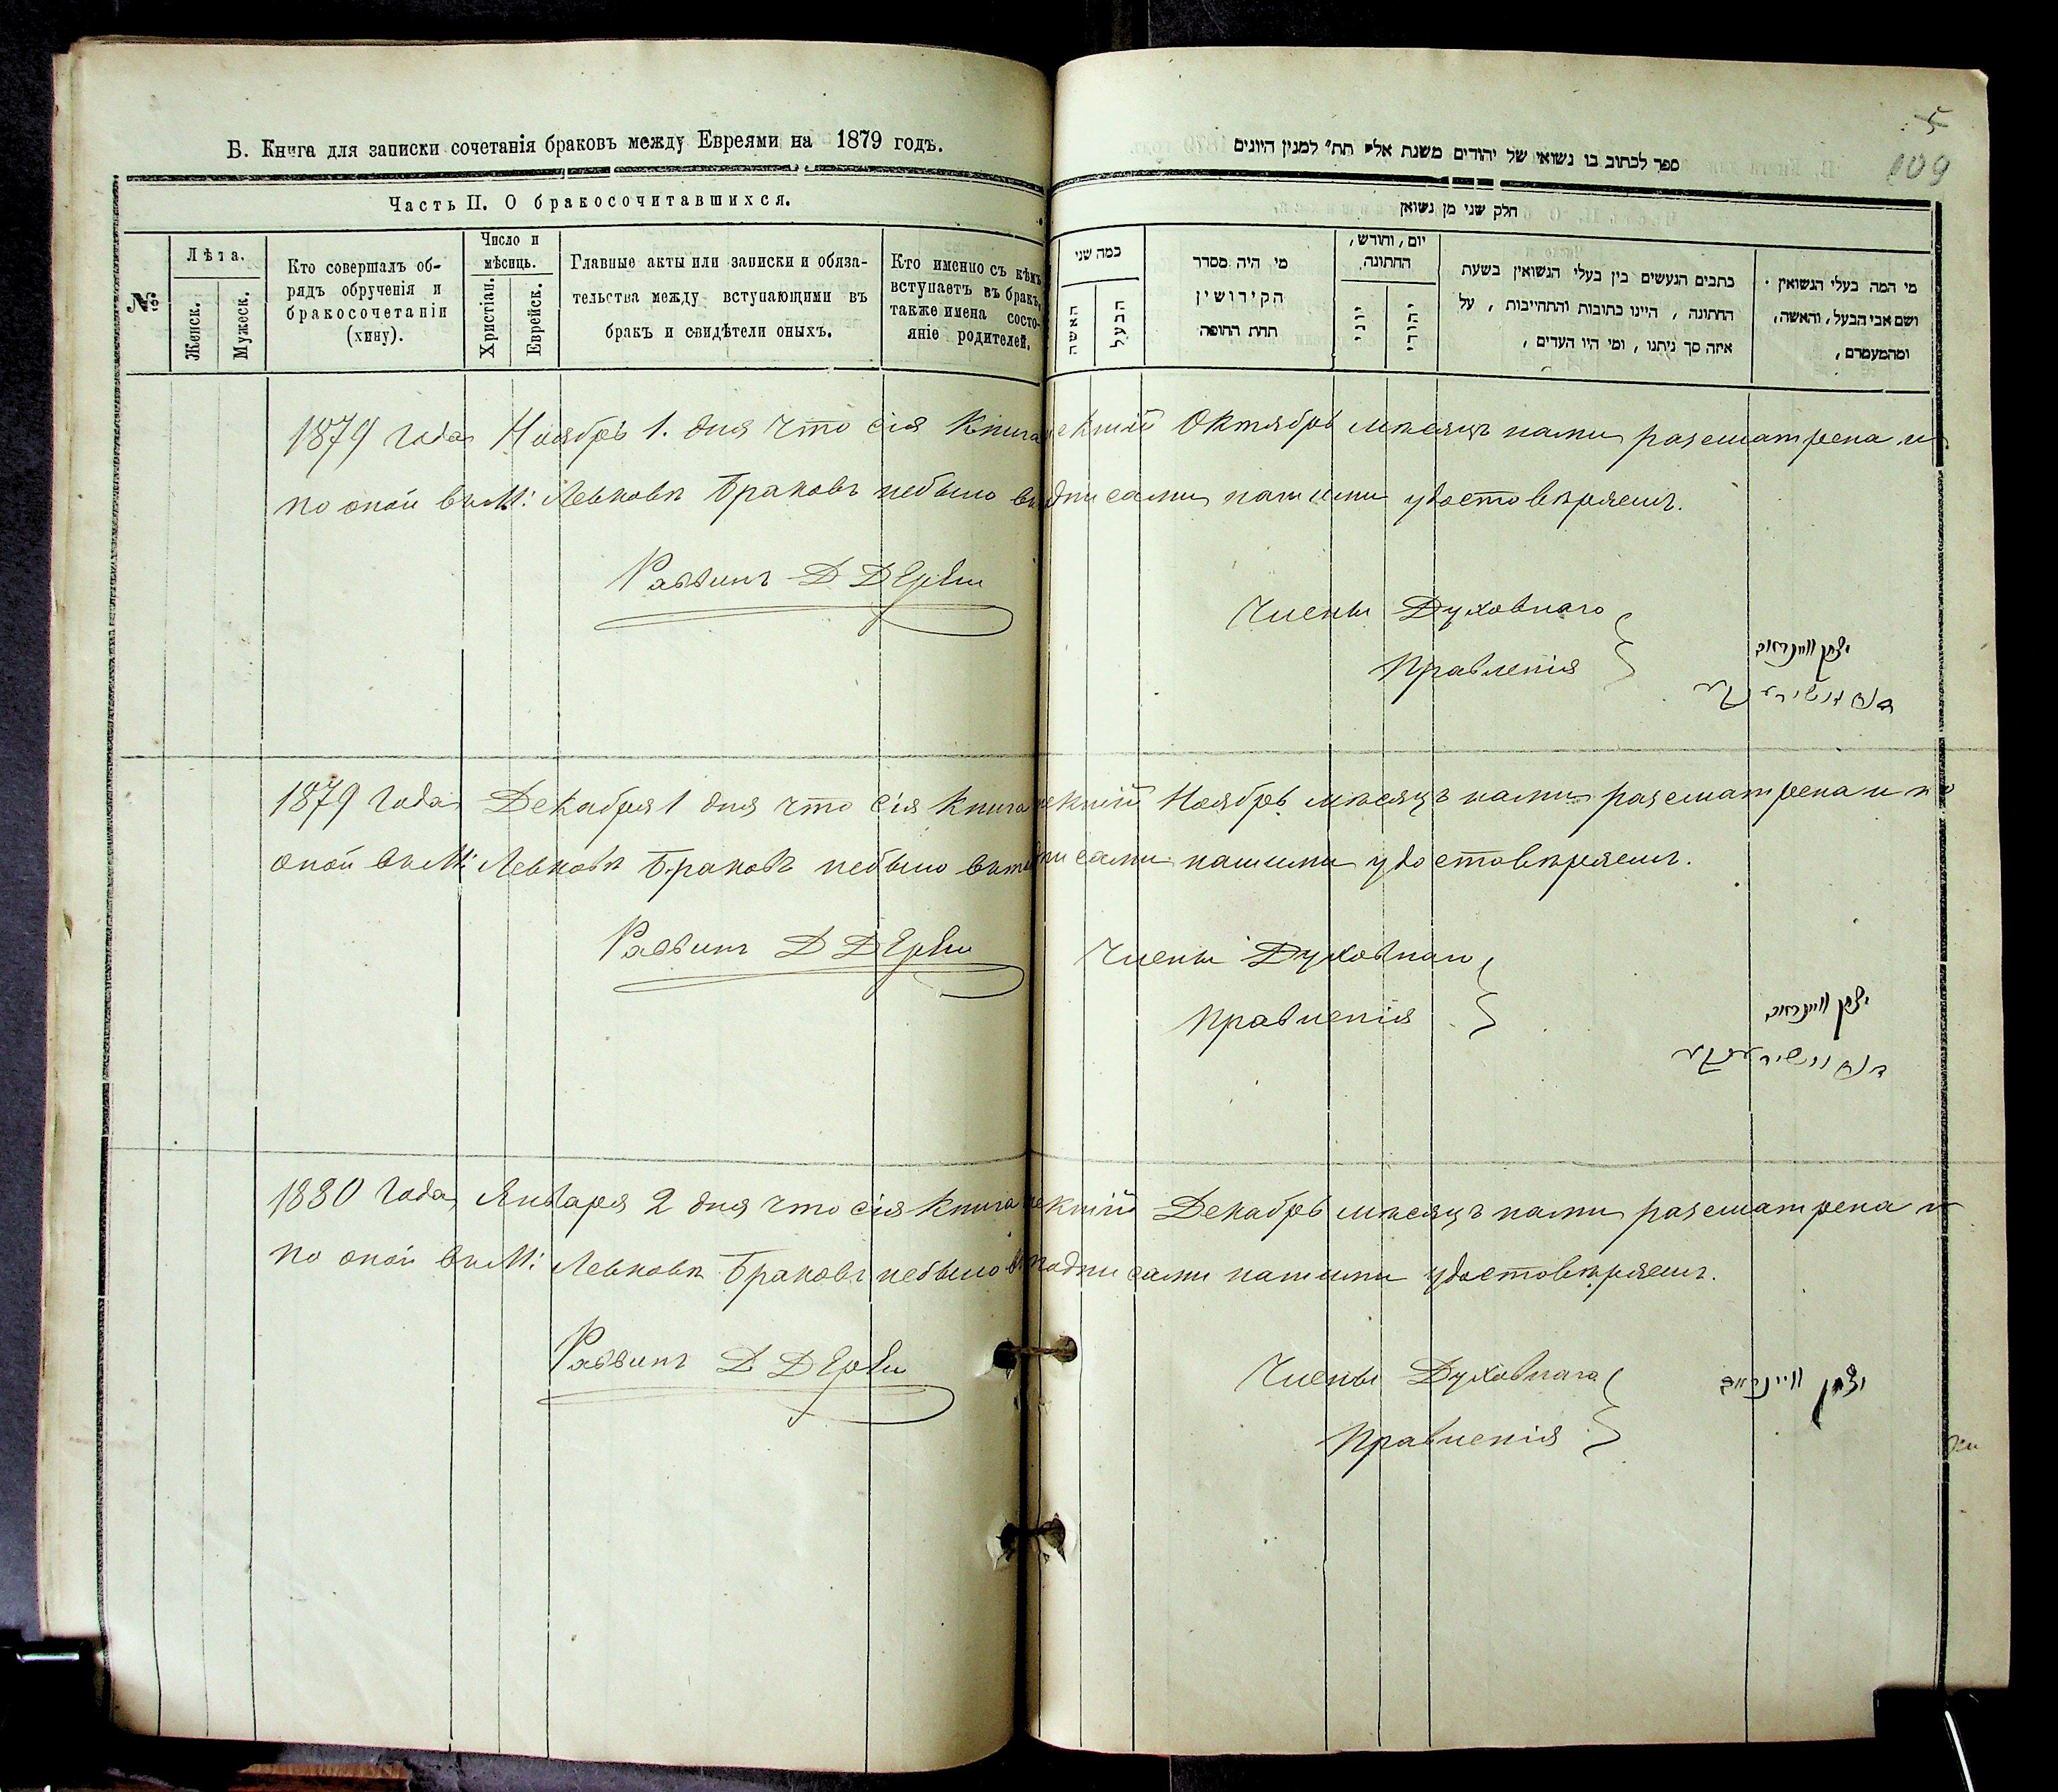 Б. Книга для записки сочетанія браковъ между Евреями на 1879 годъ.
Часть II. О бракосочитавшихся.
№
Лѣта.
Женск.
Мужеск.
Кто совершалъ об-
рядъ обрученія и
бракосочетанія
(хину).
Число и
мѣсяцъ.
Христіан.
Еврейск.
Главные акты или записки и обяза-
тельства между вступающими въ
бракъ и свидѣтели оныхъ.
Кто именно съ кѣмъ
вступаетъ въ бракъ,
также имена состо-
яніе родителей.
5
109
ספר לכתוב בו נשואי של יהודים משנת אלף תת״ למנין היונים
חלק שני מן נשואין
כמה שני
האשה
הבעל
מי היה מסדר
הקידושין
תחת החופה
יום, וחודש,
החתונה,
יוני
יהודי
כתבים הנעשים בין בעלי הנשואין בשעת
החתונה, היינו כתובות והתחייבות, על
איזה סך ניתנו, ומי היו העדים,
מי המה בעלי הנשואין
ושם אבי הבעל, והאשה,
ומהמעמדם,
1879 года Ноябрь 1. дня что сія книга Октябрь мѣсяцъ нами разсматрена и
по оной въ М: Левковѣ Браковъ небыло подписами нашими удостовѣряемъ.
Раввинъ Д
Члены Духовнаго
Правленія
יצחק
1879 года Декабря 1 дня что сія книга Ноябрь мѣсяцъ нами разсматрена и по
оной въ М: Левковѣ Браковъ небыло подписами нашими удостовѣряемъ.
Раввинъ Д
Члены Духовнаго
Правленія
יצחק
1880 года Января 2 дня что сія книга Декабрь мѣсяцъ нами разсматрена и
по оной въ М: Левковѣ Браковъ небыло подписами нашими удостовѣряемъ.
Раввинъ Д
Члены Духовнаго
Правленія
יצחק